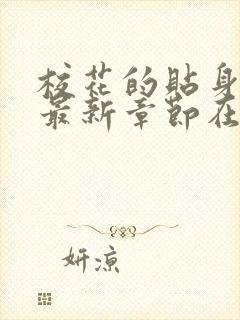 校花的貼身
最新章節在
妍涼